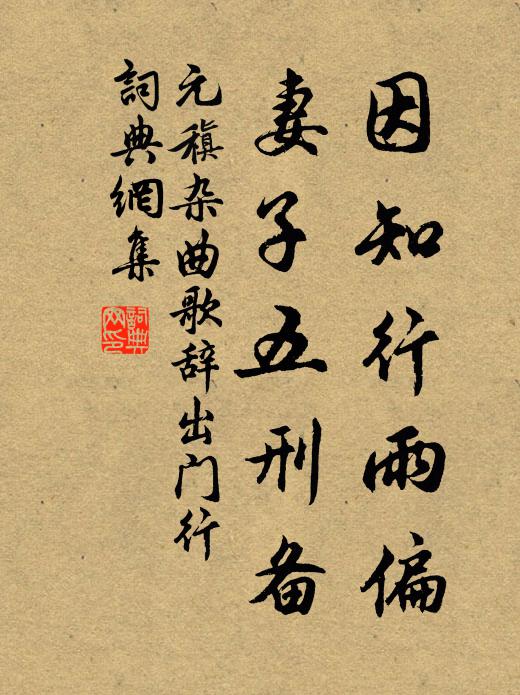 因知行雨偏
妻子五刑备
元稹杂曲歌辞出门行
詞典網集
詞典網印